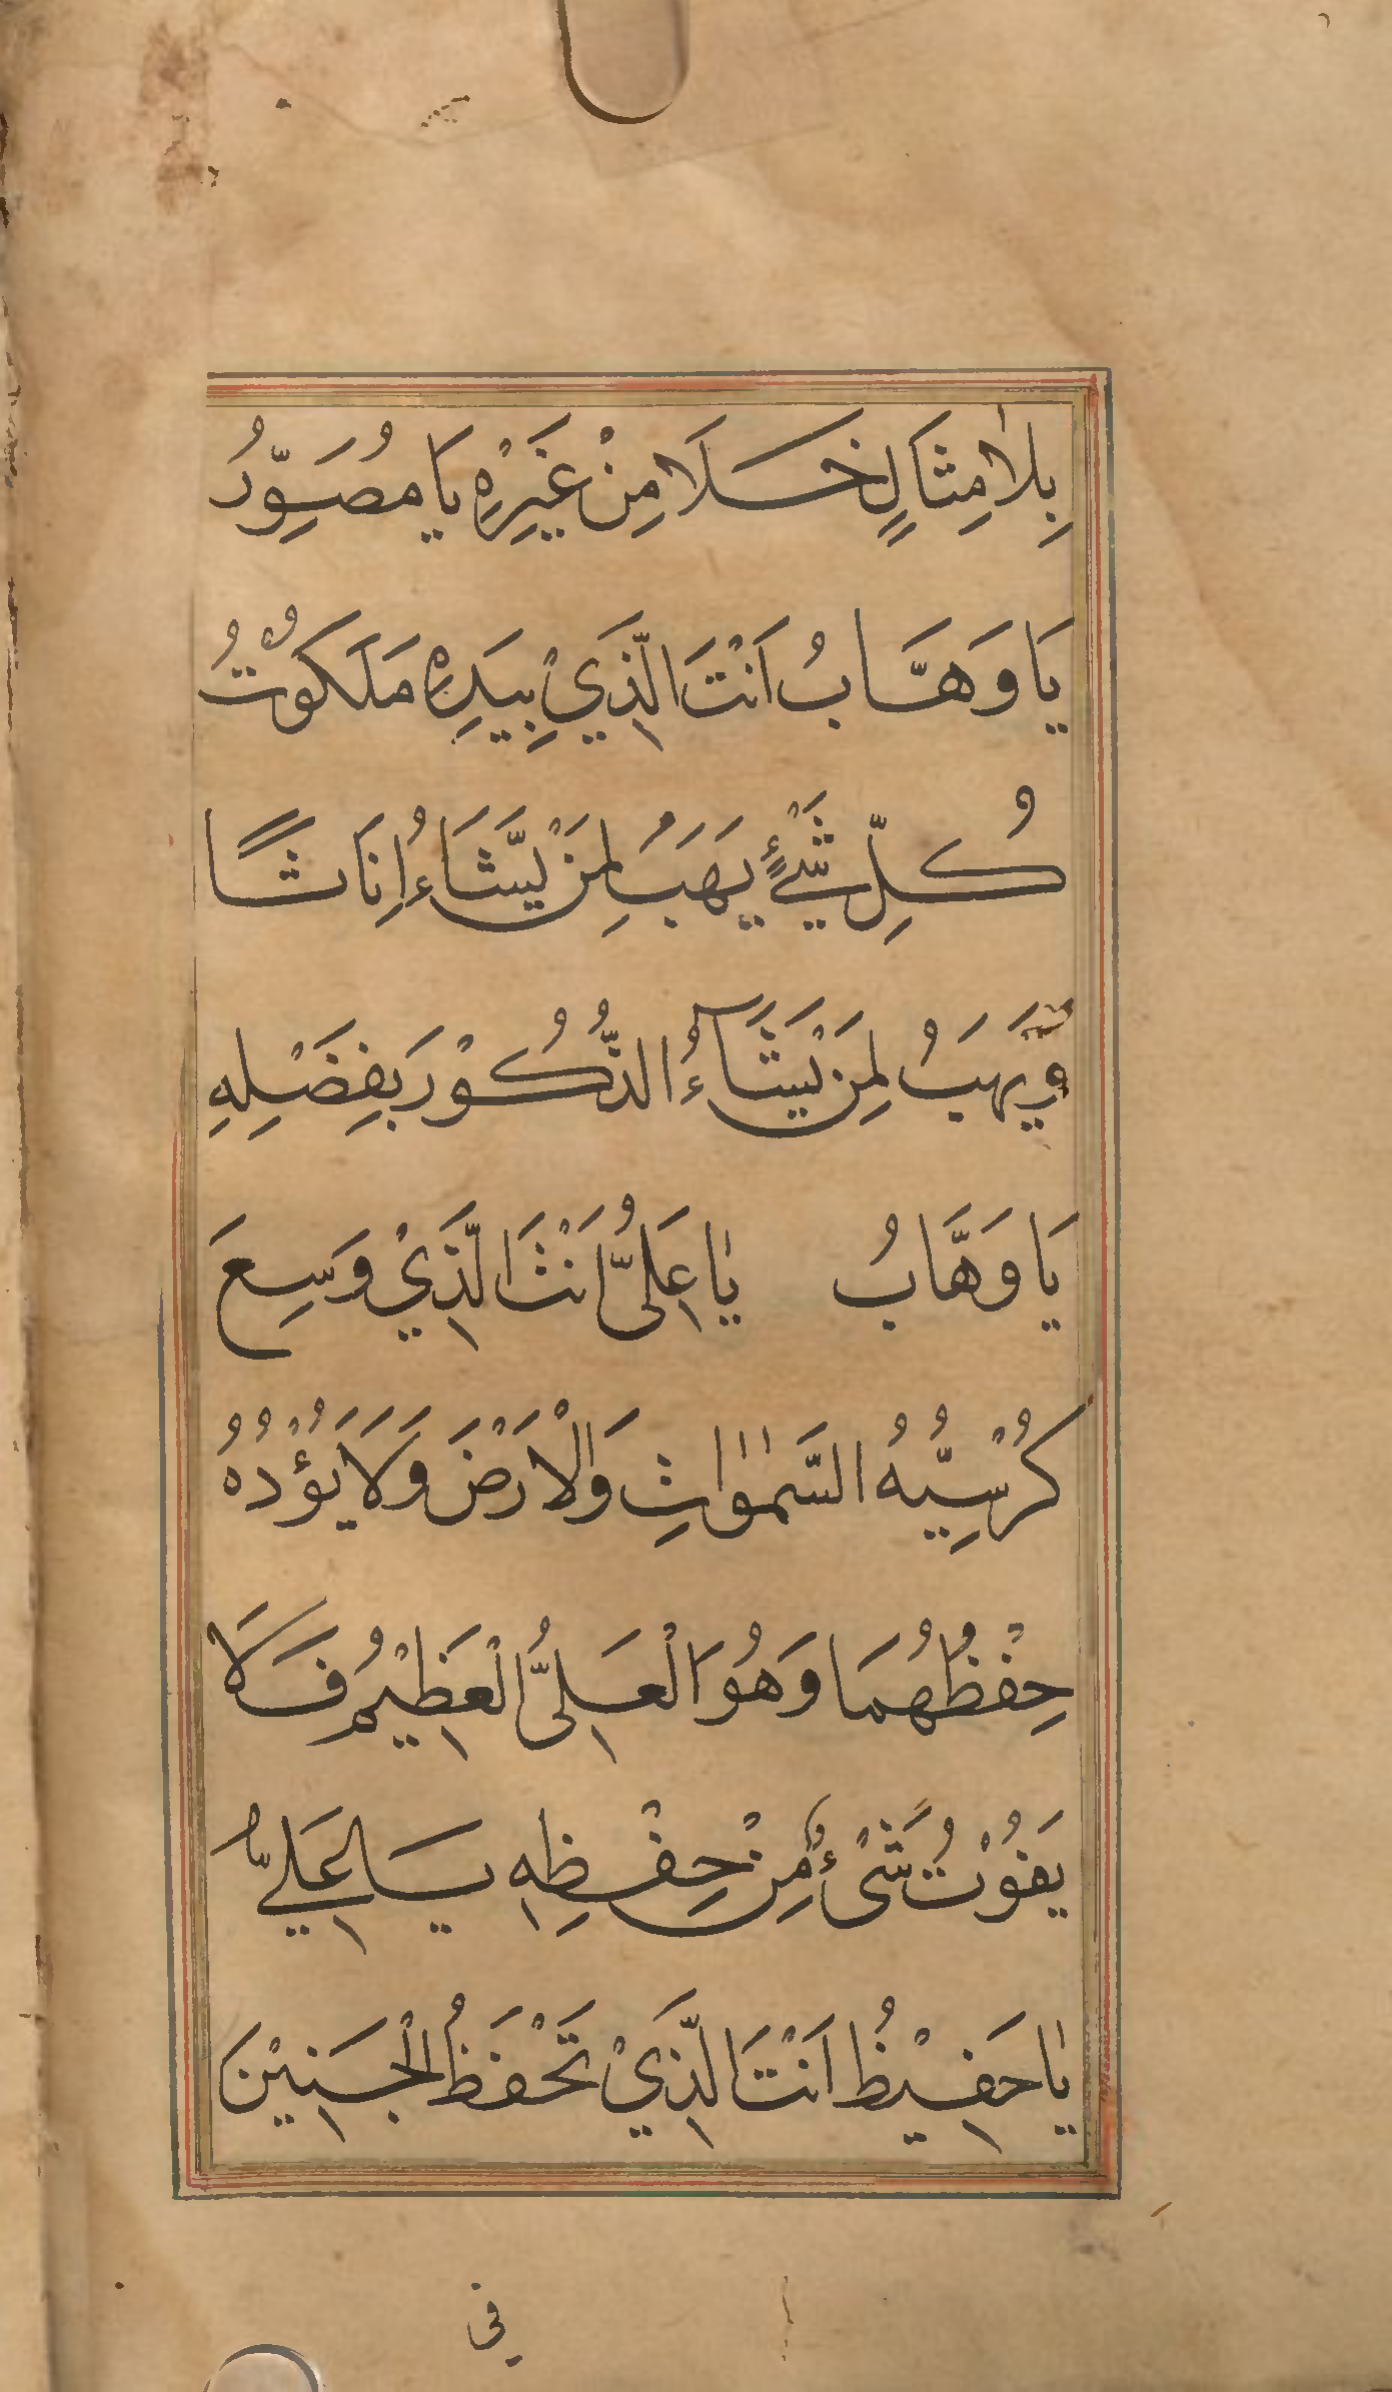 بِلَا مِثَالٍ خَلَا مِنْ غَيْرِهٖ يَا مُصَوِّرُ
يَا وَهَّابُ اَنْتَ الَّذِيْ بِيَدِهٖ مَلَكُوْتُ
كُلِّ شَيْءٍ يَهَبُ لِمَنْ يَّشَاءُ اِنَاثًا
وَّيَهَبُ لِمَنْ يَّشَآءُ الذُّكُوْرَ بِفَضْلِهِ
يَا وَهَّابُ يَا عَلِيُّ اَنْتَ الَّذِيْ وَسِعَ
كُرْسِيُّهُ السَّمٰوٰاتِ وَالْاَرْضَ وَلَا يَؤُدُهُ
حِفْظُهُمَا وَهُوَ الْعَلِيُّ الْعَظِيْمُ فَلَا
يَفُوْتُ شَيْءٌ مِّنْ حِفْظِهٖ يَا عَلِيُّ
يَا حَفِيْظُ اَنْتَ الَّذِيْ تَحْفَظُ الْجَنِيْنَ
فى